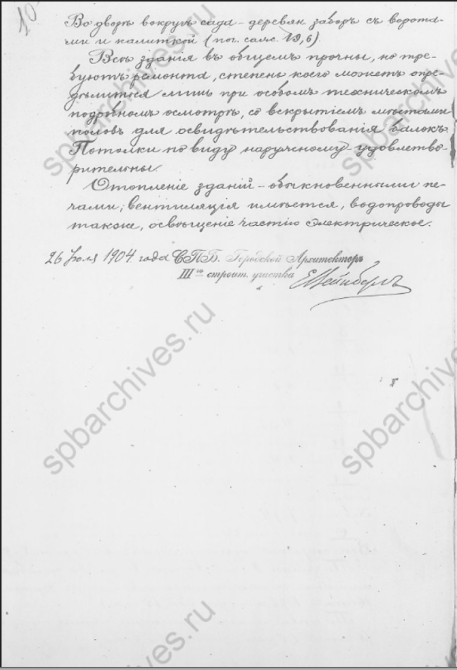 10
Во дворѣ вокругъ сада - деревян. заборъ съ ворота-
ми и калиткой (пог. саж. 19,6)
Всѣ зданія въ общемъ прочны, но тре-
буютъ ремонта, степень коего можетъ опре-
дѣлиться лишь при особомъ техническомъ
подробномъ осмотрѣ, со вскрытіемъ мѣстами
половъ для освидѣтельствованія балокъ.
Потолки по виду наружному удовлетво-
рительны.
Отопленіе зданій - обыкновенными пе-
чами; вентиляція имѣется, водопроводы
также, освѣщеніе частію электрическое.
26 Іюля 1904 года С.П.Б. Городской Архитекторъ
III го строит. участка
spbarchives.ru
spbarchives.ru
spbarchives.ru
spbarchives.ru
spbarchives.ru